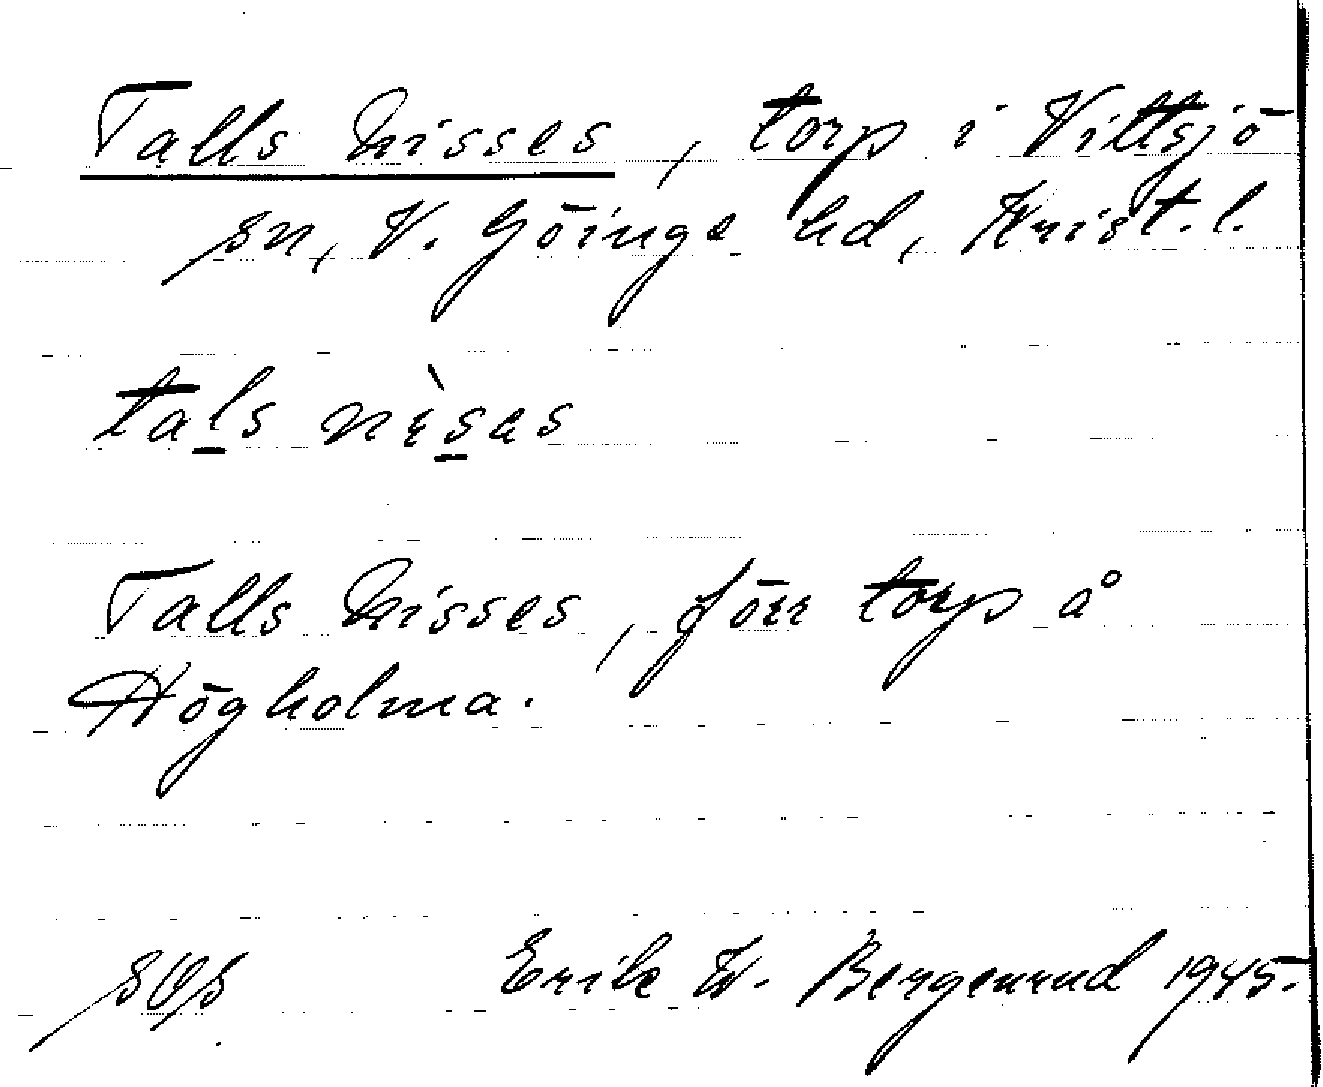 Talls Nisses, torp i Vittsjö
sn, V. Göinge hd, Krist. l.
tals nìsəs
Talls Nisses, förr torp å
Högholma.
Erik W. Bergenrud 1945.